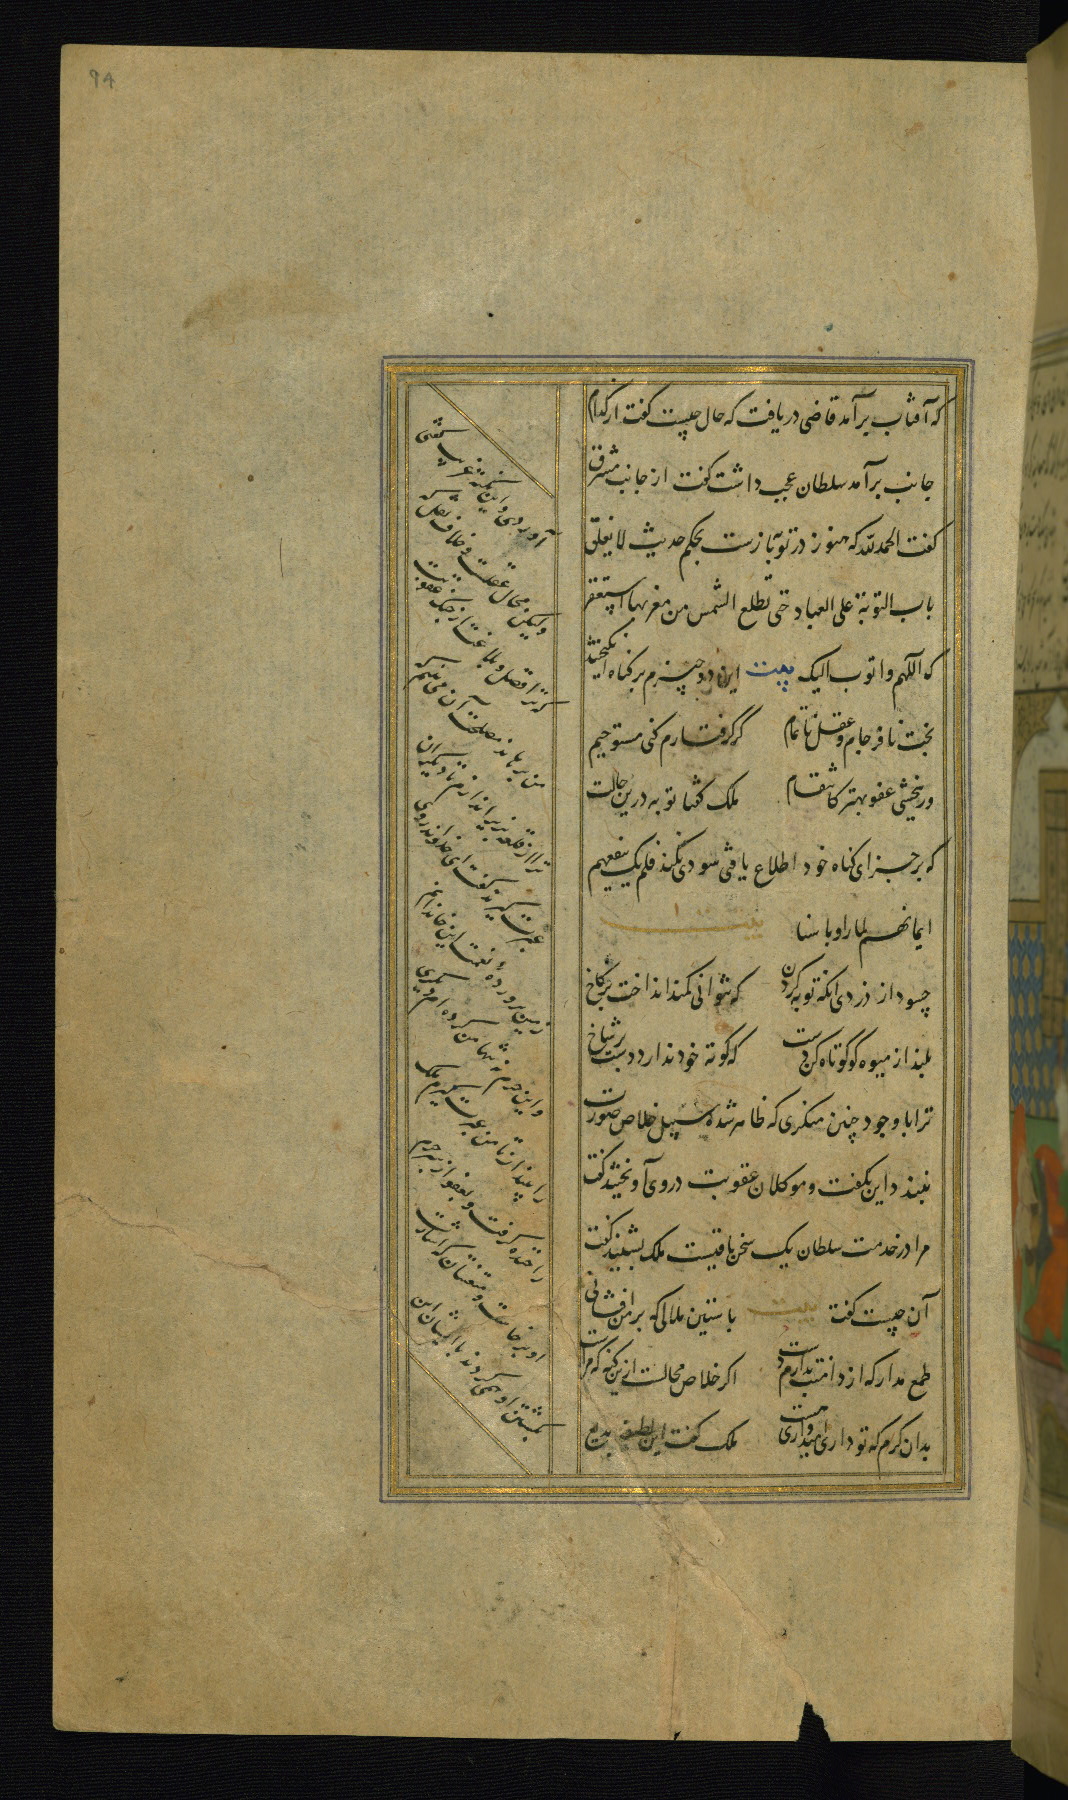 94
که آفتاب برآمد قاضی دریافت که حال چیست گفت از کدام
جانب برآمد سلطان عجب داشت گفت از جانب مشرق
گفت الحمدلله که هنوز در توبه بازست بحکم حدیث لا یغلق
باب التوبة علی العباد حتی تطلع الشمس من مغربها استغفر
که اللهم واتوب الیک بیت این دو چیزم بر گناه انگیختند
بخت نافرجام و عقل ناتمام گر گرفتارم کنی مستوجبم
ور ببخشی عفو بهتر کانتقام ملک گفتا توبه درین حالت
که بر جزای گناه خود اطلاع یافتی سودی نکند فلم یک ینفعهم
ایمانهم لما راوا باسنا
چسود از دزدی آنگه توبه کردن که نتوانی کمند انداخت بر کاخ
بلند از میوه گو کوتاه کن دست که کوته خود ندارد دست بر شاخ
ترا با وجود چنین منکری که ظاهر شده سبیل خلاص صورت
نبندد این بگفت و موکلان عقوبت در وی آویختند گفت
مرا در خدمت سلطان یک سخن باقیست ملک بشنید گفت
آن چیست گفت بیت باستین ملالی که بر من افشانی
طمع مدار که از دامنت بدارم دست اگر خلاص محالست ازین گنه که مراست
بدان کرم که تو داری امیدواری هست ملک گفت این لطیفه بدیع
آوردی و این نکته غریب گفتی
ولیکن محال عقلست و خلاف نقل که
ترا فضل و بلاغت از چنگ عقوبت
من برهاند مصلحت آن می بینم که
ترا از قلعه بزیر اندازم تا دیگران
عبرت گیرند گفت ای خداوند روی
زمین پرورده نعمت این خاندانم
و این جرم نه تنها من کرده ام دیگری
را بینداز تا من عبرت گیرم ملک
را خنده گرفت و بعفو از سر جرم
او برخاست و متعنتان که اشارت
بکشتن او همی کردند